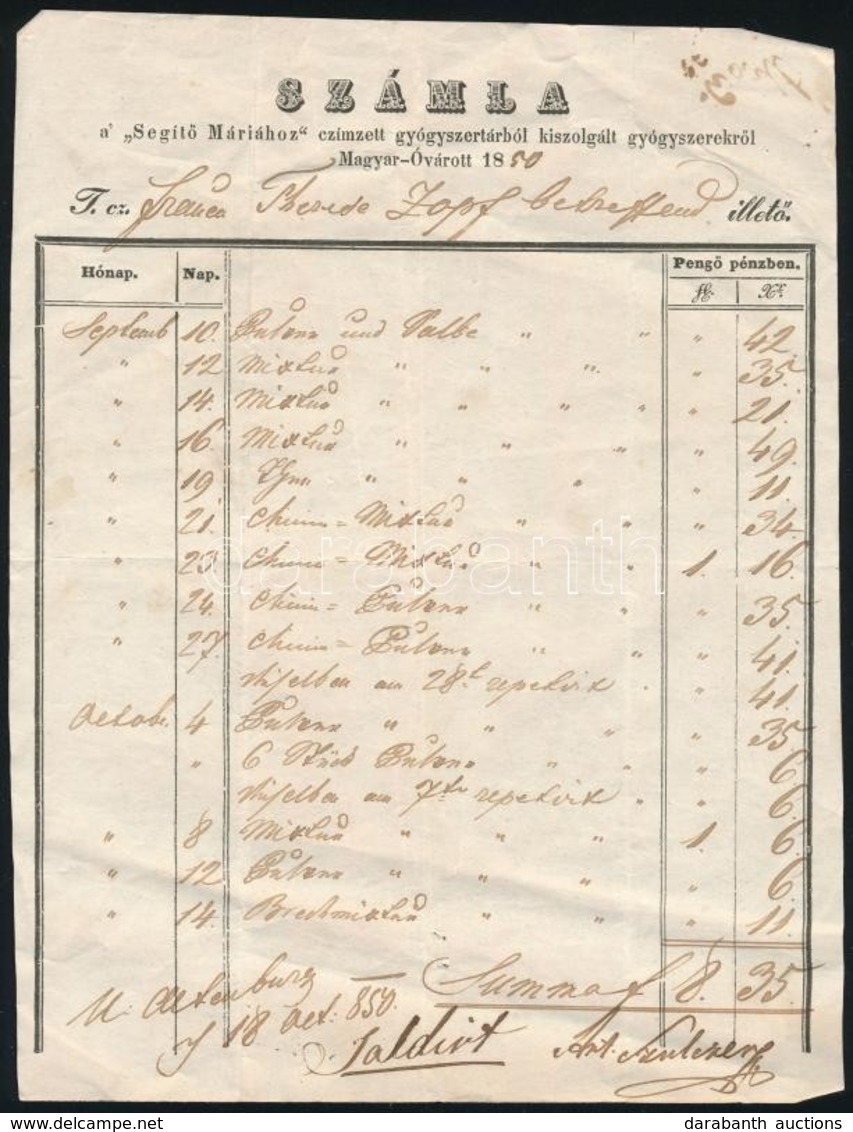 SZÁMLA
a' „Segítő Máriához“ czímzett gyógyszertárból kiszolgált gyógyszerekről
Magyar-Óvárott 1850
T. cz. Frauen Therese Zopf betreffend illető.
Hónap. Nap. Pengő pénzben.
fl. Xr.
Septemb 10. Pulver und Salbe " " " 42.
" 12 Mixtur " " " " 35.
" 14. Mixtur " " " " " 21.
" 16. Mixtur " " " " 49.
" 19. " " " " 11.
" 21. Chinin = Mixtur " " " 34.
" 23. Chinin = Mixtur " " 1. 16.
" 24. Chinin = Pulver " " " 35.
" 27. Chinin = Pulver " " " 41.
dieselben am 28t repetirt " " 41.
Octob. 4 Pulver " " " " 35.
" 6 Stück Pulver " " " 6.
dieselben am 7ten repetirt " " 6.
" 8 Mixtur " " " 1. 6.
" 12 Pulver " " " " 6.
" 14. Brechmixtur " " " 11.
Summa f 8. 35.
U. Altenburg
18 Oct: 850.
Saldirt Ant.
darabanth
www.delcampe.net darabanth auctions